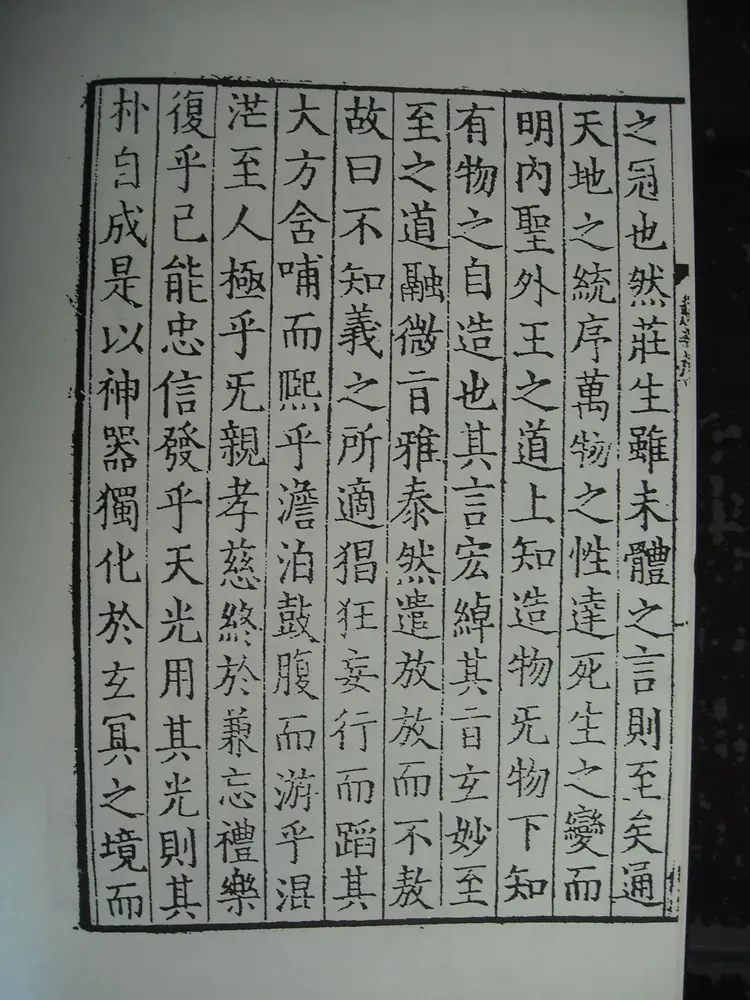 之冠也然莊生雖未體之言則至矣通
天地之統序萬物之性達死生之變而
明內聖外王之道上知造物旡物下知
有物之自造也其言宏綽其旨玄妙至
至之道融微旨雅泰然遣放放而不敖
故曰不知義之所適猖狂妄行而蹈其
大方含哺而熙乎澹泊鼓腹而游乎混
茫至人極乎旡親孝慈終於兼忘禮樂
復乎已能忠信發乎天光用其光則其
朴自成是以神器獨化於玄冥之境而